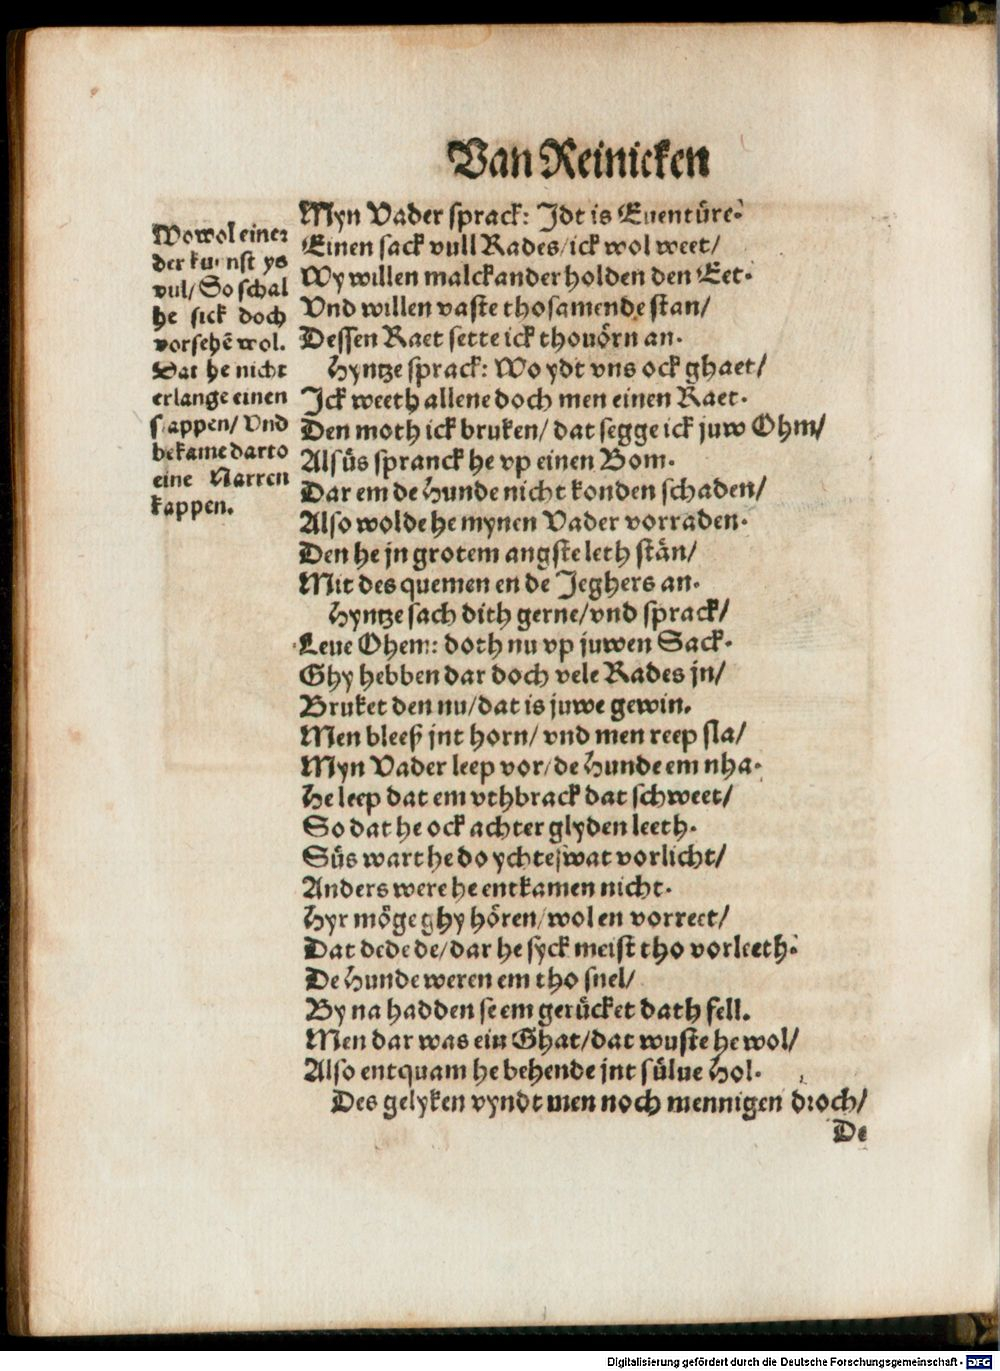 Van Reinicken
Wowol einer
der kunst ys
vul/ So schal
he sick doch
vorsehē wol.
Dat he nicht
erlange einen
slappen/ Vnd
bekame darto
eine Narren
kappen.
Myn Vader sprack: Jdt is Euentüre.
Einen sack vull Rades/ ick wol weet/
Wy willen malckander holden den Eet.
Vnd willen vaste thosamende stan/
Dessen Raet sette ick thouörn an.
Hyntze sprack: Wo ydt vns ock ghaet/
Jck weeth allene doch men einen Raet.
Den moth ick bruken/ dat segge ick juw Ohm/
Alsüs spranck he vp einen Bom.
Dar em de Hunde nicht konden schaden/
Also wolde he mynen Vader vorraden.
Den he jn grotem angste leth stän/
Mit des quemen en de Jeghers an.
Hyntze sach dith gerne/ vnd sprack/
Leue Ohem: doth nu vp juwen Sack.
Ghy hebben dar doch vele Rades jn/
Bruket den nu/ dat is juwe gewin.
Men bleeß jnt horn/ vnd men reep sla/
Myn Vader leep vor/ de Hunde em nha.
He leep dat em vthbrack dat schweet/
So dat he ock achter glyden leeth.
Süs wart he do ychteswat vorlicht/
Anders were he entkamen nicht.
Hyr möge ghy hören/ wol en vorreet/
Dat dede de/ dar he syck meist tho vorleeth.
De Hunde weren em tho snel/
By na hadden se em gerücket dath fell.
Men dar was ein Ghat/ dat wuste he wol/
Also entquam he behende jnt sülue Hol.
Des gelyken vyndt men noch mennigen droch/
De
Digitalisierung gefördert durch die Deutsche Forschungsgemeinschaft - DFG